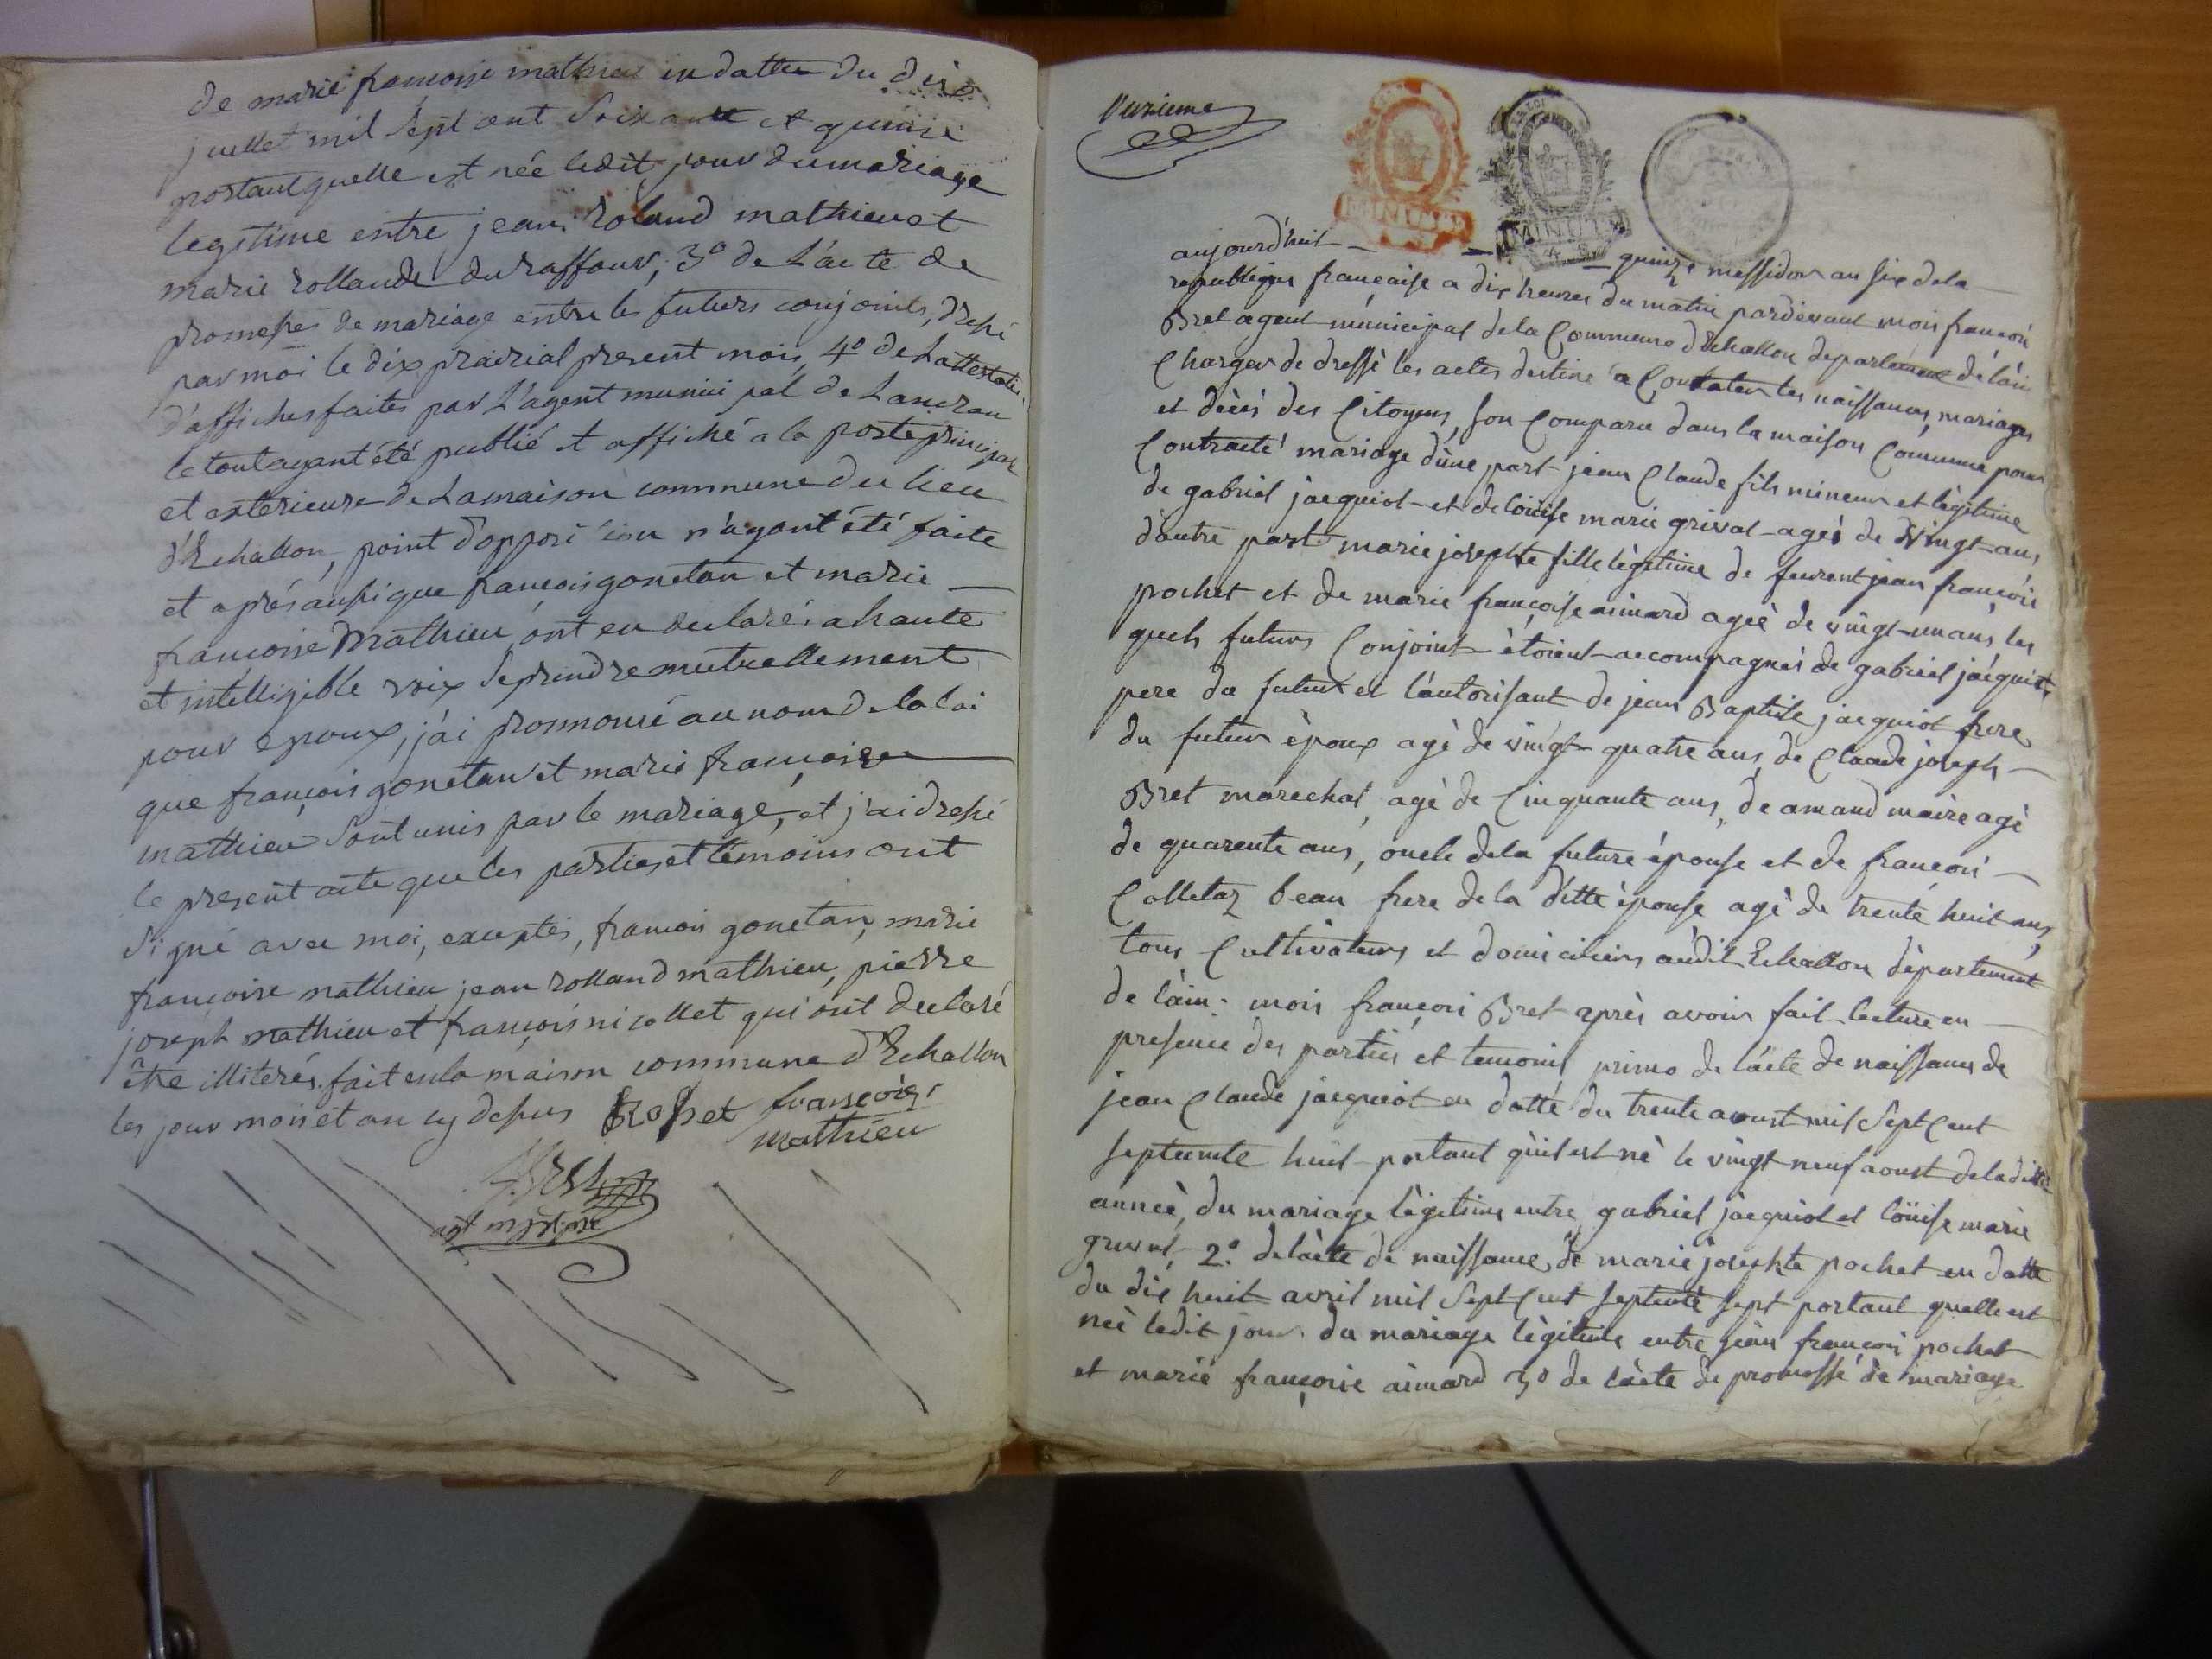 de marie francoise mathieu en datte du dix
juillet mil sept cent soixante et quinze
portant quelle est née ledit jour du mariage
legitime entre jean roland mathieu et
marie rollande du raffour, 3º de L'acte de
promesses de mariage entre les futurs conjoints, dressé
par moi le dix prairial present mois, 4º de Lattestation
d'affiches faites par L'agent municipal de Lancran
le tout ayant été publié et affiché a la porte principale
et exterieure de La maison commune du lieu
d'Echallon, point d'opposition n'ayant été faite
et après aussi que francois gonetan et marie
françoise Mathieu ont eu declaré a haute
et intelligible voix se prendre mutuellement
pour epoux, j'ai prononcé au nom de la loi
que françois gonetan et marie françoise
mathieu sont unis par le mariage, et j'ai dressé
le present acte que les parties et témoins ont
signé avec moi, exceptés, francois gonetan, marie
françoise mathieu jean rolland mathieu, pierre
joseph mathieu et françois nicollet qui ont declaré
être illiterés. fait en la maison commune d'Echallon
les jour mois et an cy dessus Rosset françois
mathieu
Bret
agt mpal
aujourd'huit quinze messidor an six de la
republique française a dix heures du matin pardevant moi françois
Bret agent municipal de la Commune dEchallon departement de l'ain
Charger de dressé les actes destiné a Constater les naissances, mariages
et décés des Citoyens, son Comparu dans la maison Commune pour
Contracté mariage d'une part jean Claude fils mineur et lègitime
de gabriel jacquiot et de loüise marie grival agés de vingt ans,
d'autre part marie josephte fille lègitime de feurent jean françois
pochet et de marie françoise aimard ageè de vingt-un ans, les
quels futurs Conjoint ètoient accompagnés de gabriel jacquiot
pere du futur et l'autorisant de jean Baptiste jacquiot frere
du futur èpoux agè de vingt quatre ans, de Claude joseph
Bret marechal, agè de Cinquante ans, de amand maire agè
de quarente ans, oncle dela future épouse et de françois
Colletaz beau frere de la ditte èpouse agè de trente huit ans,
tous Cultivateurs et domiciliers audit Echallon dèpartement
de làin. mois françois Bret après avoir fait lecture en
presence des parties et temoins primo de l'acte de naissance de
jean Claude jacquiot en datté du trente aoust mil sept Cent
septente huit portant qu'il est nè le vingt neuf aoust de la ditte
année, du mariage lègitime entre gabriel jacquiot et loüise marie
grival, 2º. de lacte de naissance de marie josephte pochet en datte
du dix huit avril mil sept Cent septente sept portant quelle est
neè ledit jour du mariage lègitime entre jean françois pochet
et marie françoise aimard 3º de làcte de promesse de mariage